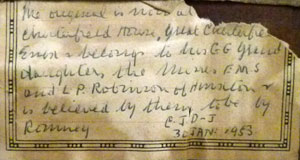 The original is now at
Chesterfield House, Great Chesterford
Essex & belongs to his GG Grand
daughters, the Misses E M S
and L P. Robinson of
is believed by them to be by
Romney
C J D-J
3 JAN: 1953